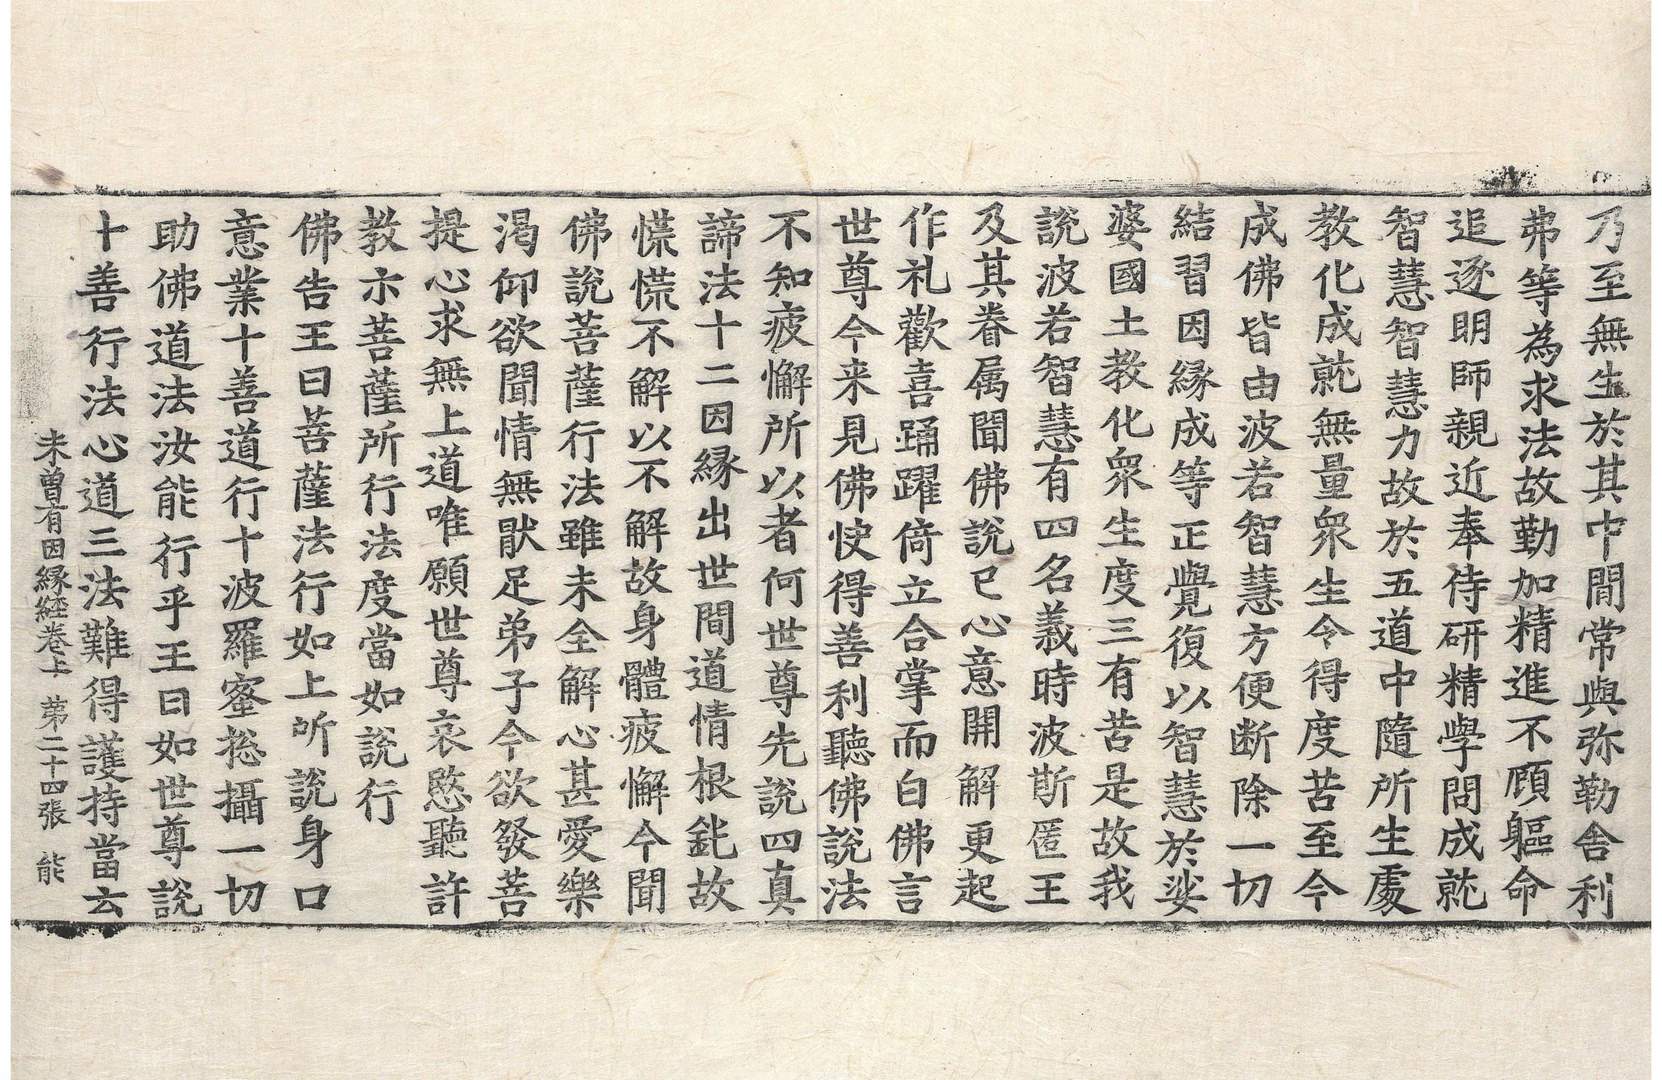 乃至無生於其中間常與弥勒舍利
弗等為求法故勤加精進不頋軀命
追逐明師親近奉侍研精學問成就
智慧智慧力故於五道中隨所生處
教化成就無量衆生令得度苦至今
成佛皆由波若智慧方便断除一切
結習因縁成等正覺復以智慧於娑
婆國土教化衆生度三有苦是故我
說波若智慧有四名義時波斯匿王
及其眷属聞佛說已心意開解更起
作礼歡喜踊躍倚立合掌而白佛言
世尊今来見佛快得善利聽佛說法
不知疲懈所以者何世尊先說四真
諦法十二因縁出世間道情根鈍故
慌慌不解以不解故身體疲懈今聞
佛說菩薩行法雖未全解心甚愛樂
渴仰欲聞情無猒足弟子今欲發菩
提心求無上道唯願世尊哀愍聽許
教示菩薩所行法度當如說行
佛告王曰菩薩法行如上所說身口
意業十善道行十波羅蜜揔攝一切
助佛道法汝能行乎王曰如世尊說
十善行法心道三法難得護持當云
未曾有因縁経卷上 第二十四張 能